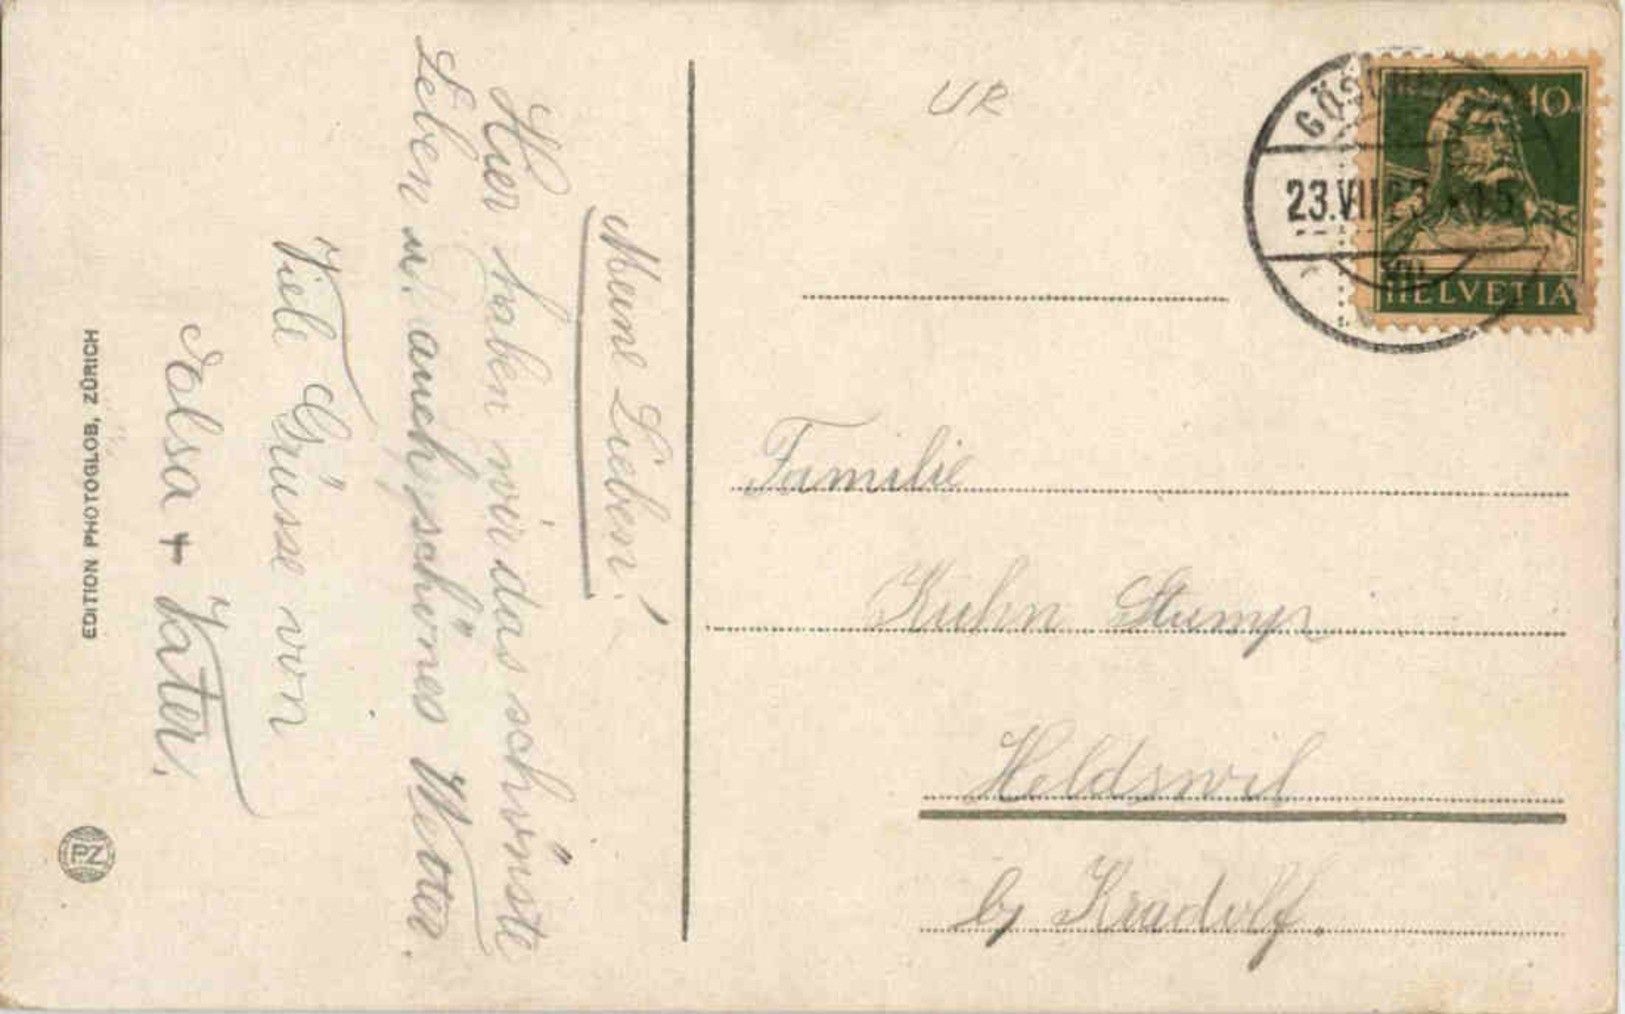 Meine Lieben!
Hier haben wir das schönste
Leben u. auch schönes Wetter.
Viele Grüsse von
+ Vater.
EDITION PHOTOGLOB, ZÜRICH
PZ
UR
23.VII.23
10
HELVETIA
Familie
Kuhn Stump
Heldswil
by Kradolf.